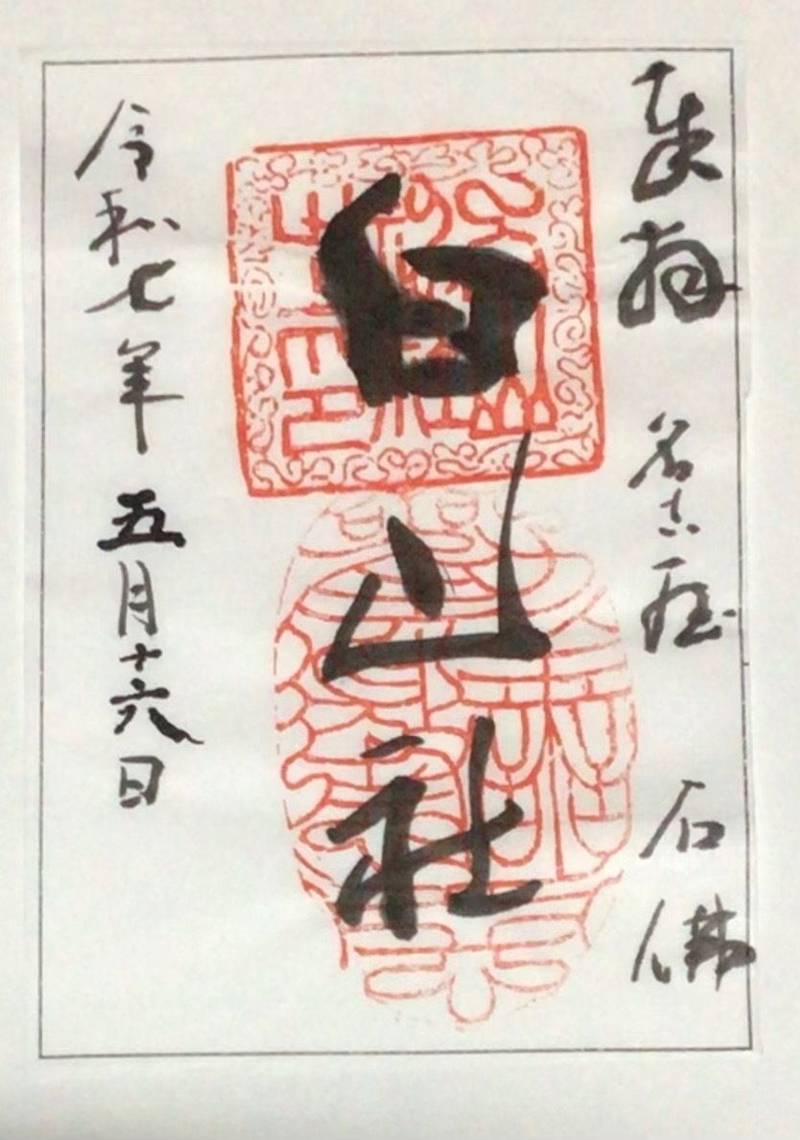 奉拝 名古屋 石佛
白山社
令和七年五月十六日